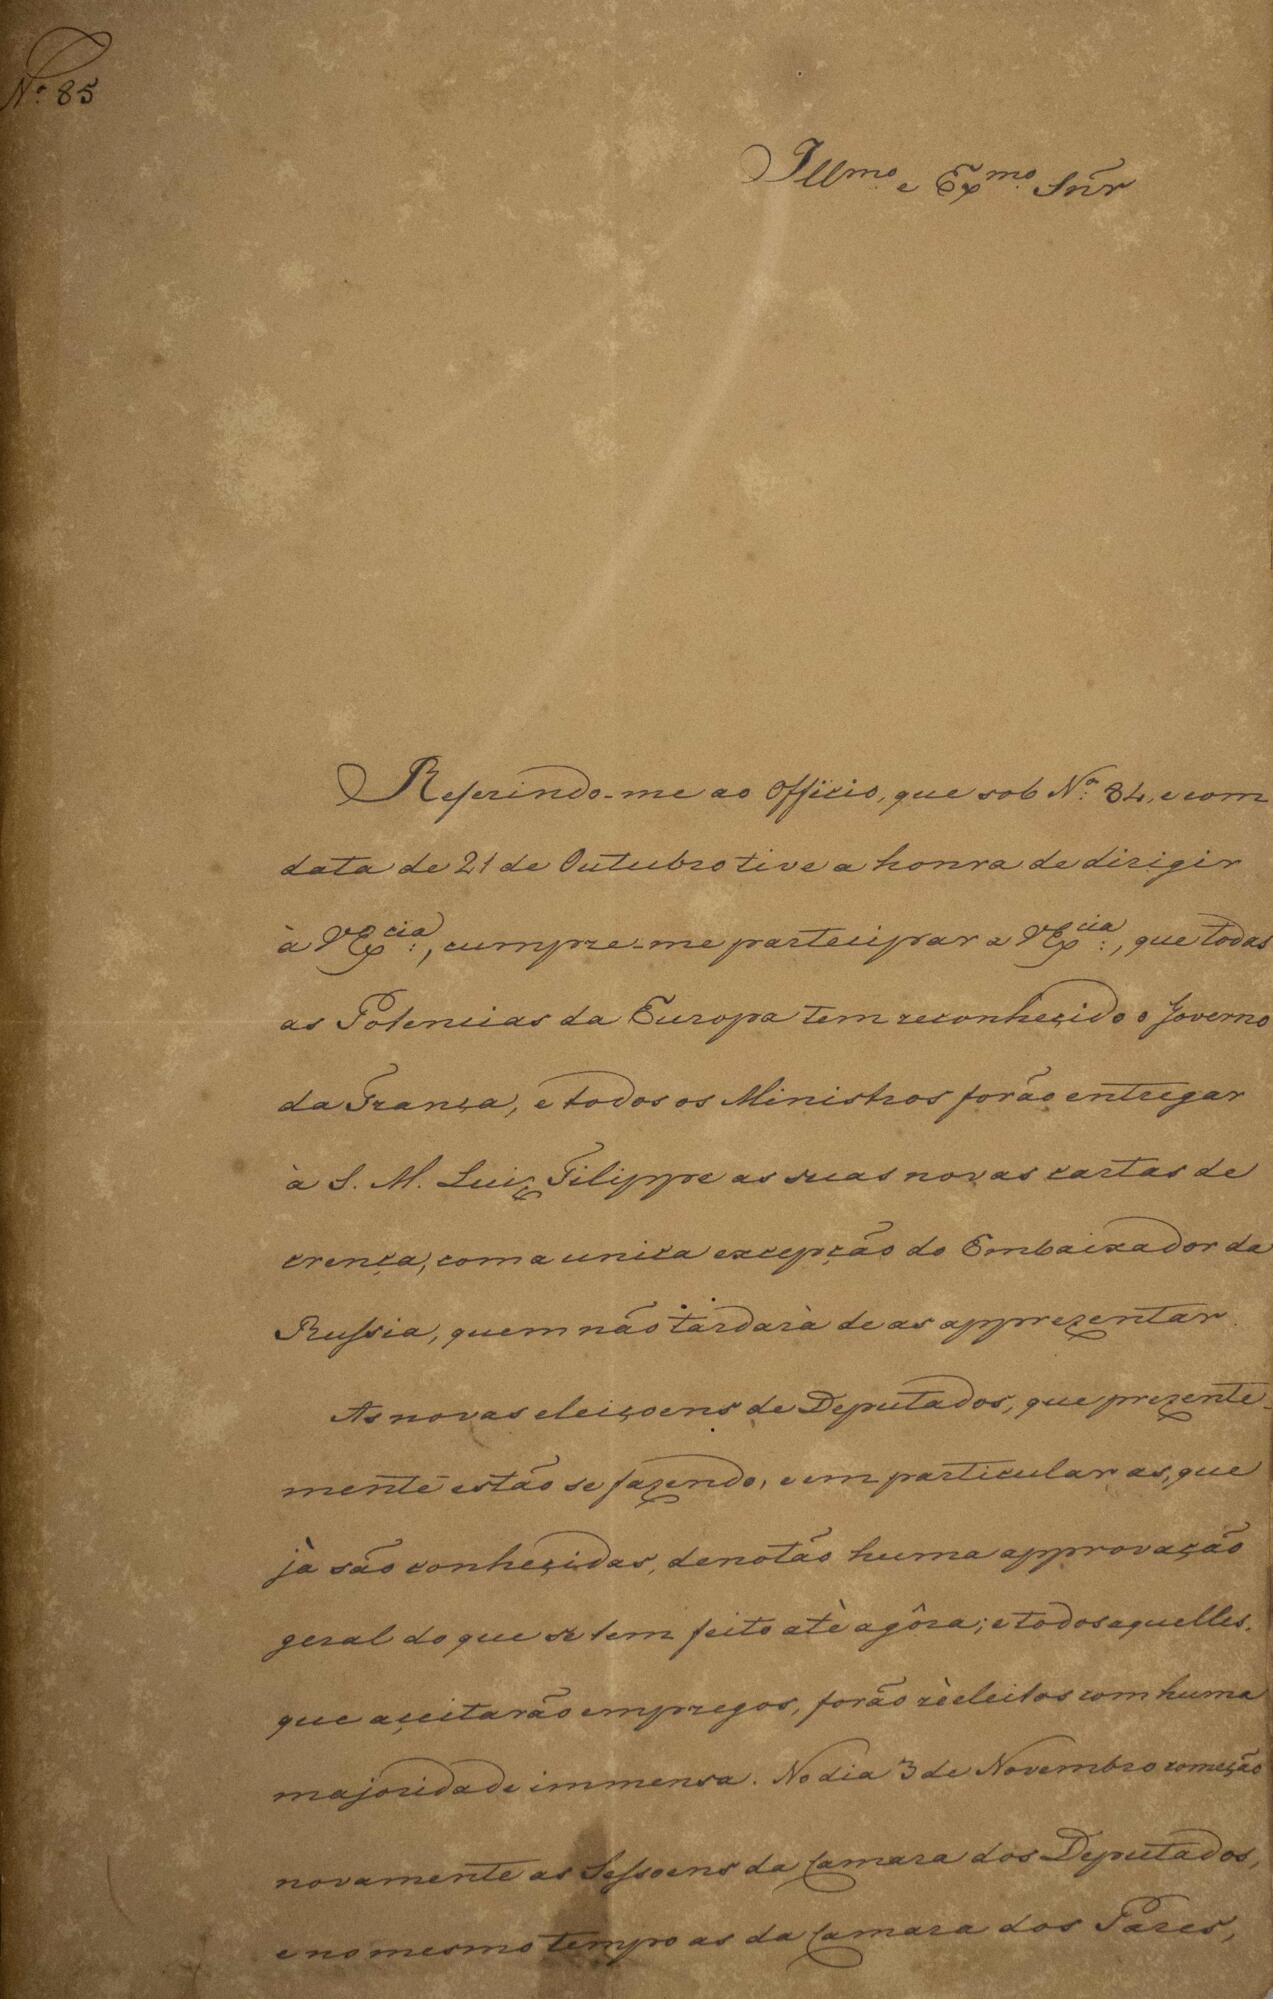 Nº 85
Illmo. e Exmo. Snr
Referindo-me ao Officio, que sob Nº 84, e com
data de 21 de Outubro tive a honra de dirigir
à VExcia:, cumpre-me partecipar a VExcia:, que todas
as Potencias da Europa tem reconheçido o Governo
da França, e todos os Ministros forão entregar
à S. M. Luiz Filippe as suas novas cartas de
crença, com a unica excepção do Embaixador da
Russia, quem não tardarà de as apprezentar.
As novas eleiçoens de Deputados, que prezente-
mente estão se fazendo, e em particular as, que
jà são conheçidas, denotão huma approvação
geral do que se tem feito atè agôra; e todos aquelles,
que açeitarão empregos, forão rèeleitos com huma
majoridade immensa. No dia 3 de Novembro começão
novamente as Sessoens da Camara dos Deputados,
e no mesmo tempo as da Camara dos Pares,